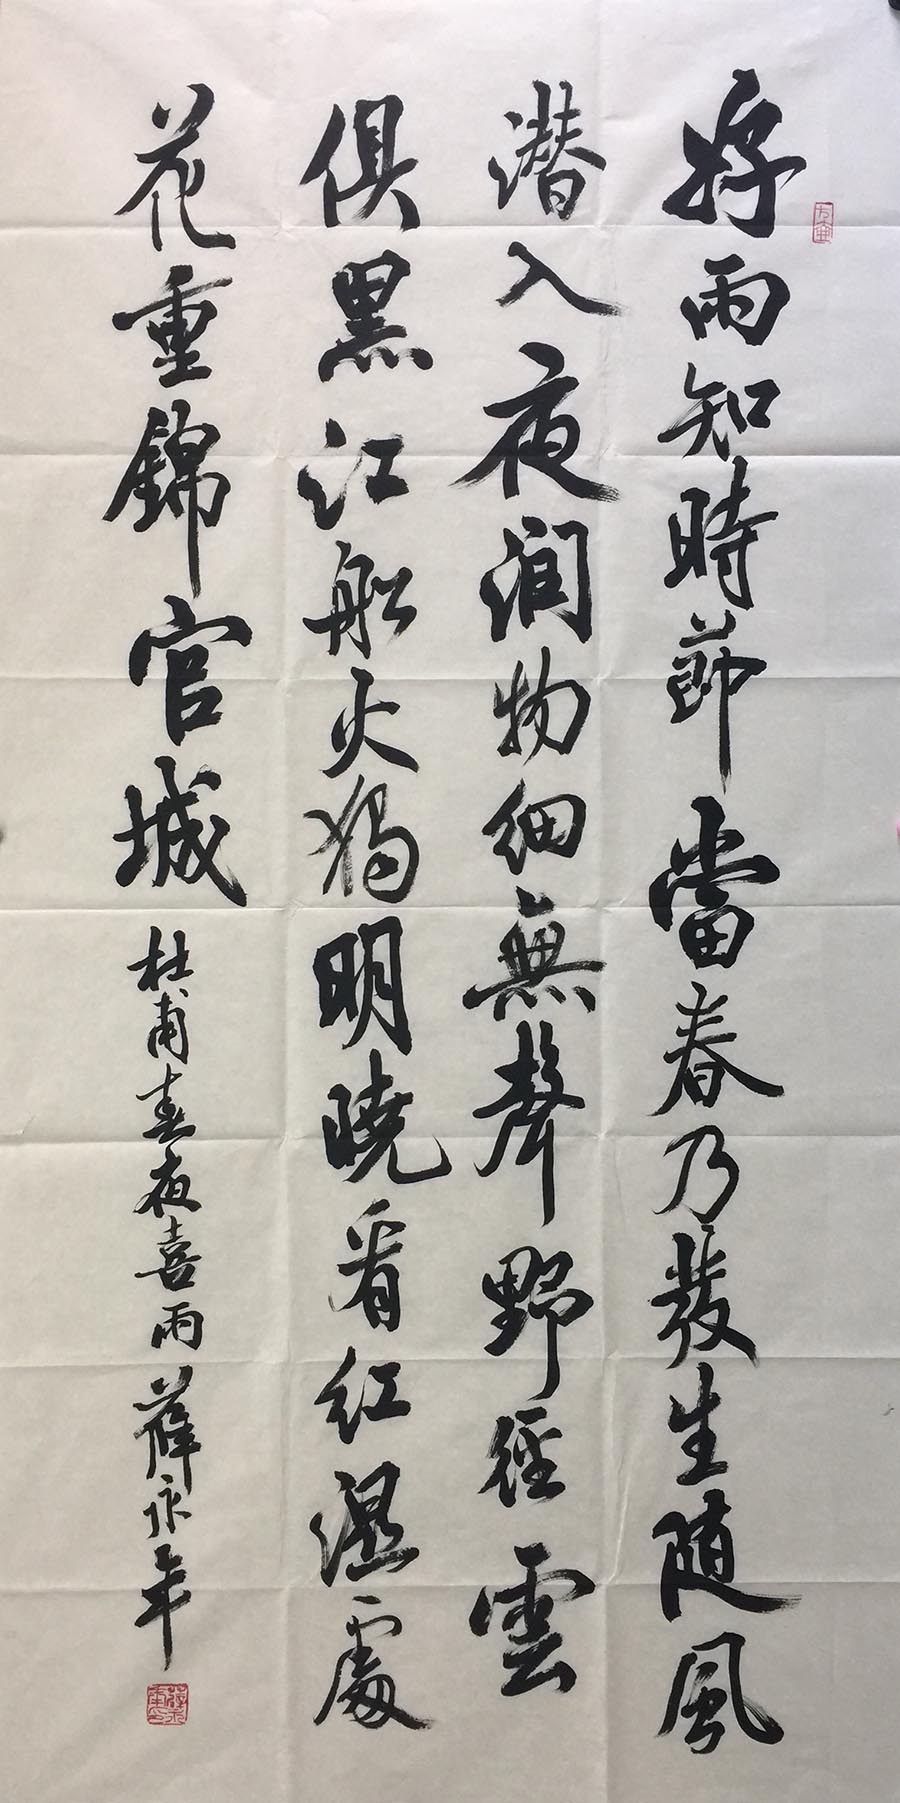 好雨知時節當春乃發生随風
潜入夜润物細無聲野徑雲
俱黑江船火独明曉看红濕處
花重錦官城杜甫春夜喜雨薛永年